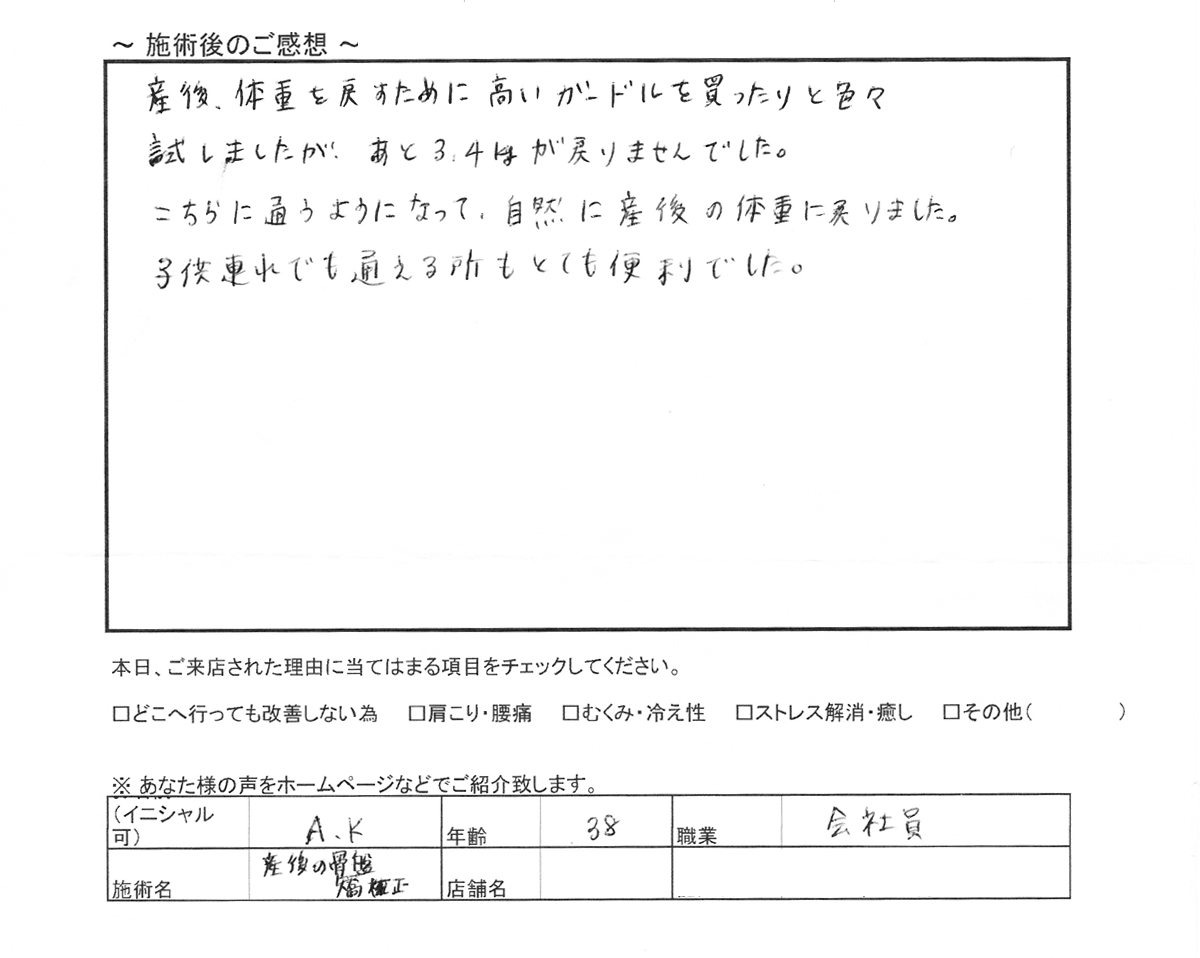 ～ 施術後のご感想 ～
産後、体重を戻すために高いガードルを買ったりと色々
試しましたが、あと3.4kgが戻りませんでした。
こちらに通うようになって、自然に産後の体重に戻りました。
子供連れでも通える所もとても便利でした。
本日、ご来店された理由に当てはまる項目をチェックしてください。
□どこへ行っても改善しない為 □肩こり・腰痛 □むくみ・冷え性 □ストレス解消・癒し □その他( )
※ あなた様の声をホームページなどでご紹介致します。
(イニシャル可) A.K 年齢 38 職業 会社員
施術名 産後の骨盤矯正 店舗名